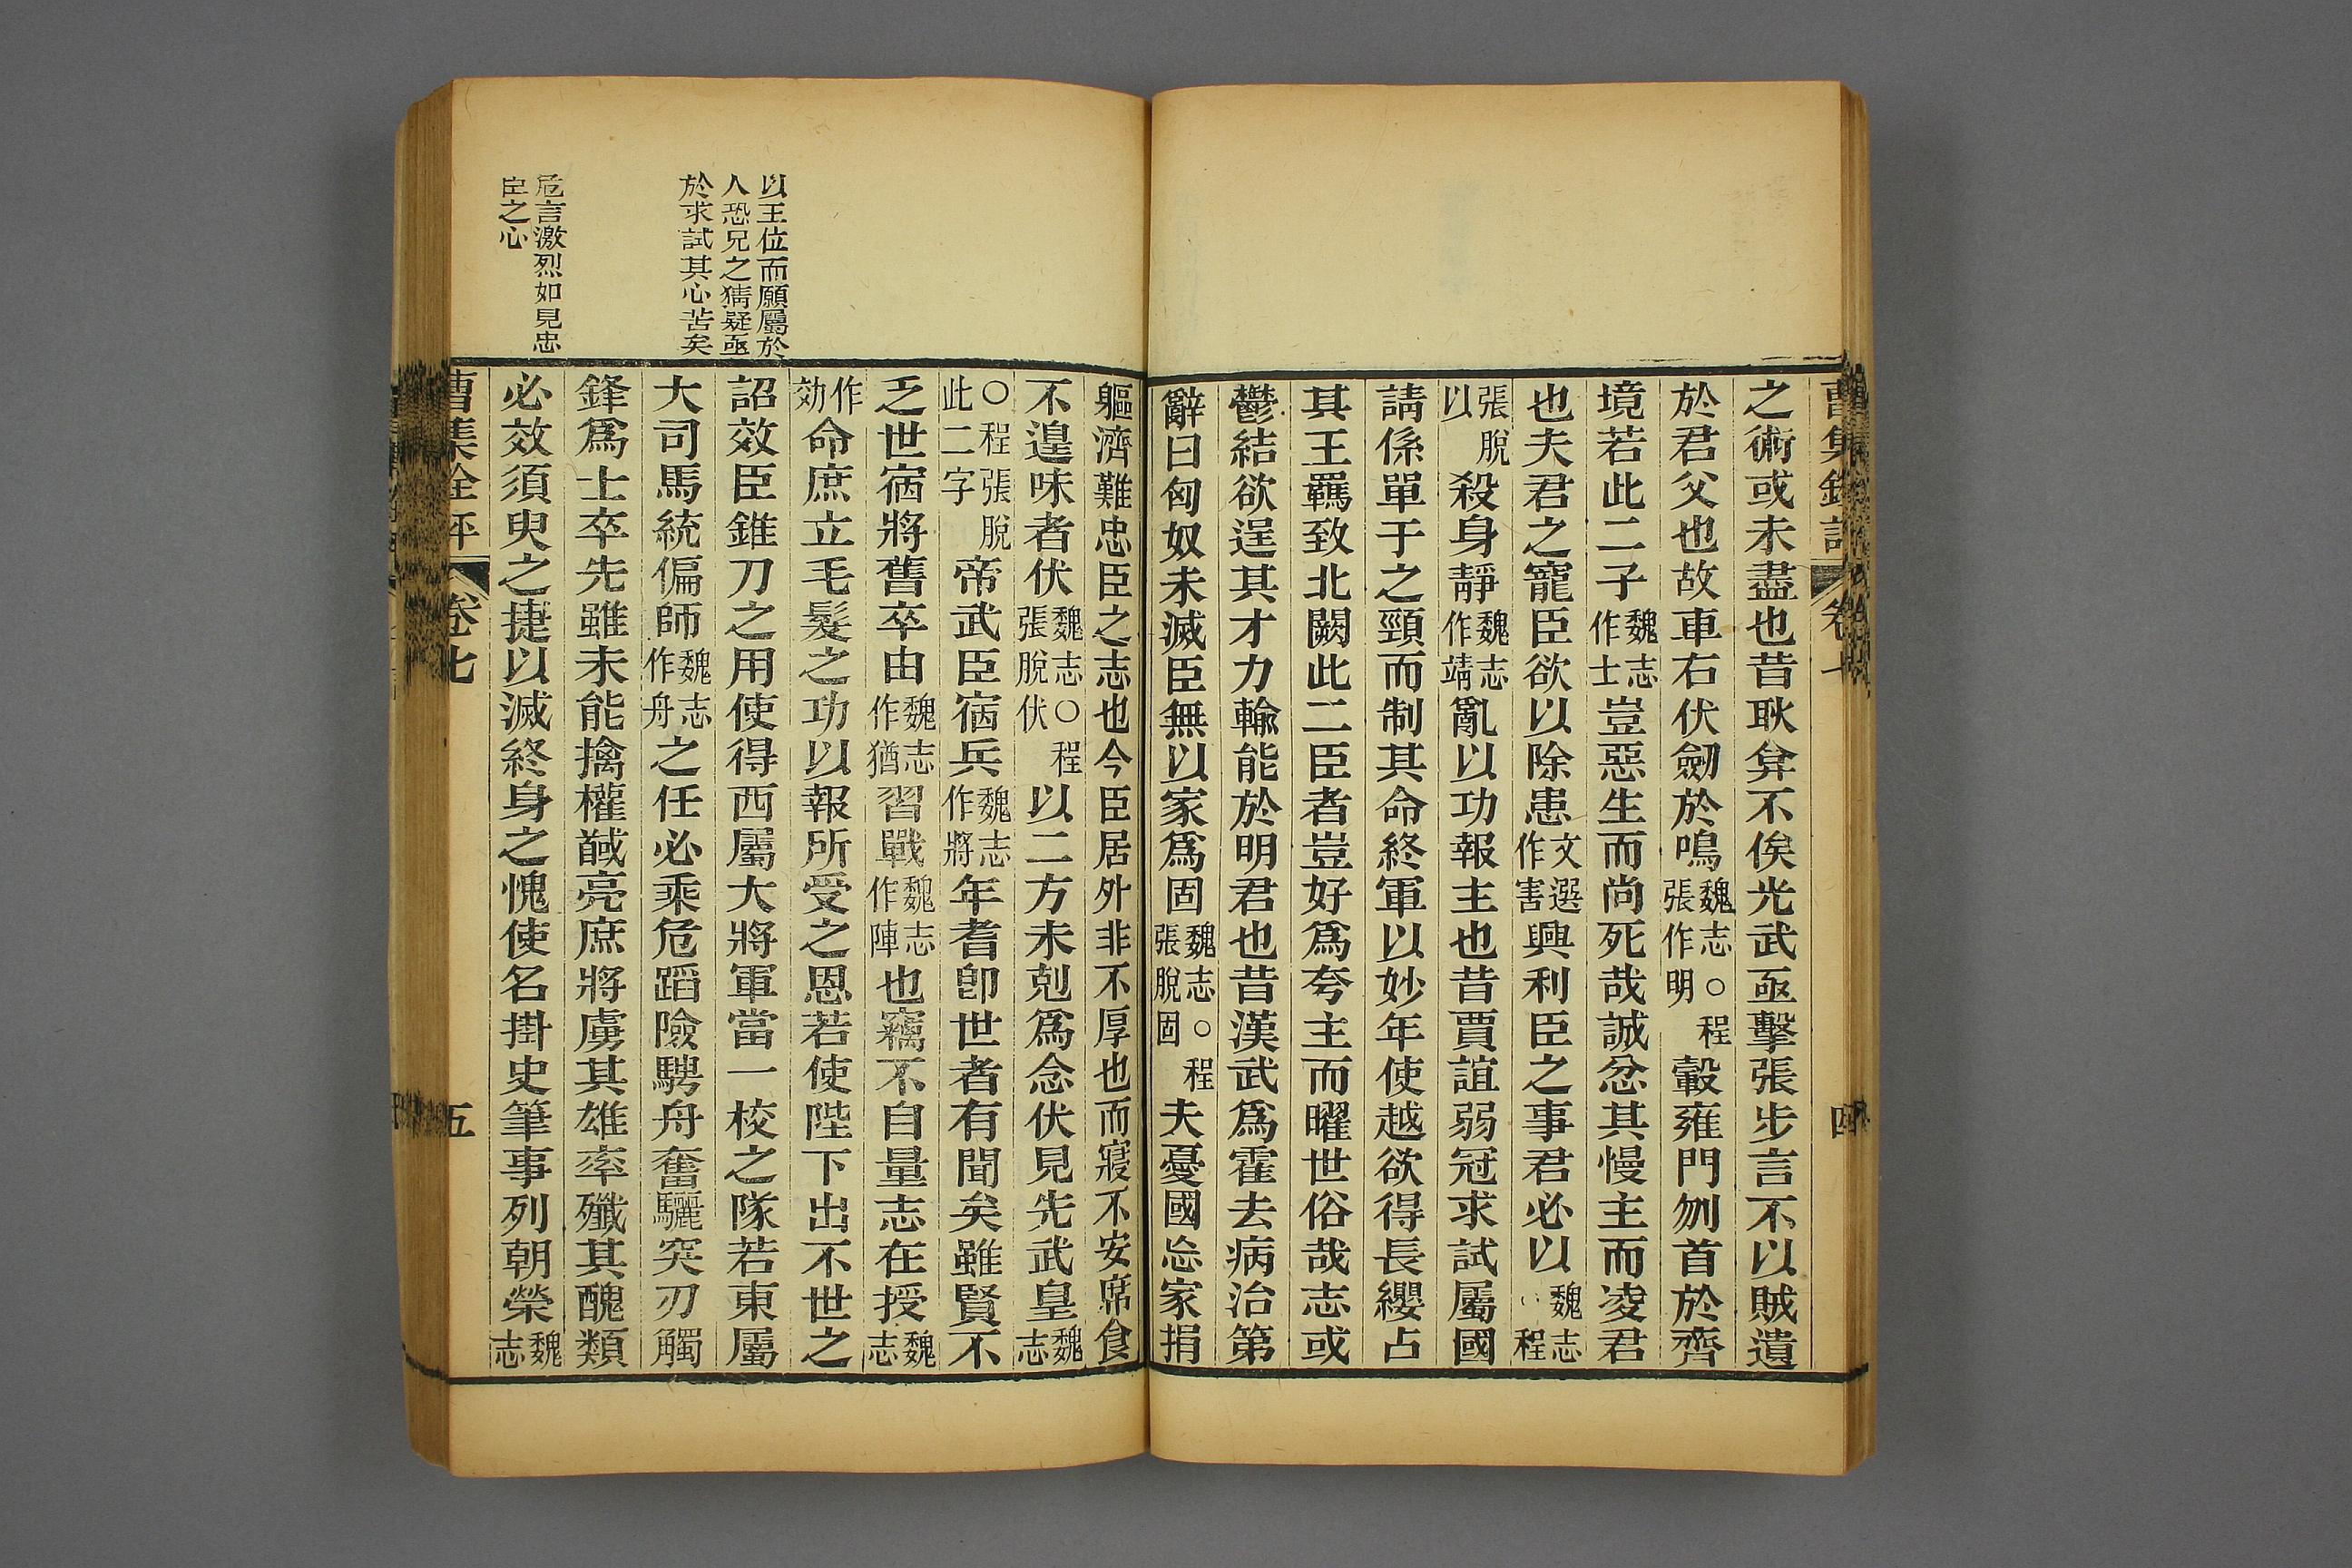 之術或未盡也昔耿弇不俟光武亟擊張步言不以賊遺
於君父也故車右伏劒於鳴魏志○程張作明轂雍門刎首於齊
境若此二子魏志作士豈惡生而尚死哉誠忿其慢主而凌君
也夫君之寵臣欲以除患文選作害興利臣之事君必以魏志程
張脫以殺身靜魏志作靖亂以功報主也昔賈誼弱冠求試屬國
請係單于之頸而制其命終軍以妙年使越欲得長纓占
其王羈致北闕此二臣者豈好爲夸主而曜世俗哉志或
鬱結欲逞其才力輸能於明君也昔漢武爲霍去病治第
辭曰匈奴未滅臣無以家爲固魏志○程張脫固夫憂國忘家捐
軀濟難忠臣之志也今臣居外非不厚也而寢不安席食
不遑味者伏魏志○程張脫伏以二方未剋爲念伏見先武皇魏志
○程張脫此二字帝武臣宿兵魏志作將年耆卽世者有聞矣雖賢不
乏世宿將舊卒由魏志作猶習戰魏志作陣也竊不自量志在授魏志
作効命庶立毛髮之功以報所受之恩若使陛下出不世之
詔效臣錐刀之用使得西屬大將軍當一校之隊若東屬
大司馬統偏師魏志作舟之任必乘危蹈險騁舟奮驪突刃觸
鋒爲士卒先雖未能擒權馘亮庶將虜其雄率殲其醜類
必效須臾之捷以滅終身之愧使名掛史筆事列朝榮魏志
曹集銓評
卷七
五
以王位而願屬於
人恐兄之猜疑亟
於求試其心苦矣
危言激烈如見忠
臣之心